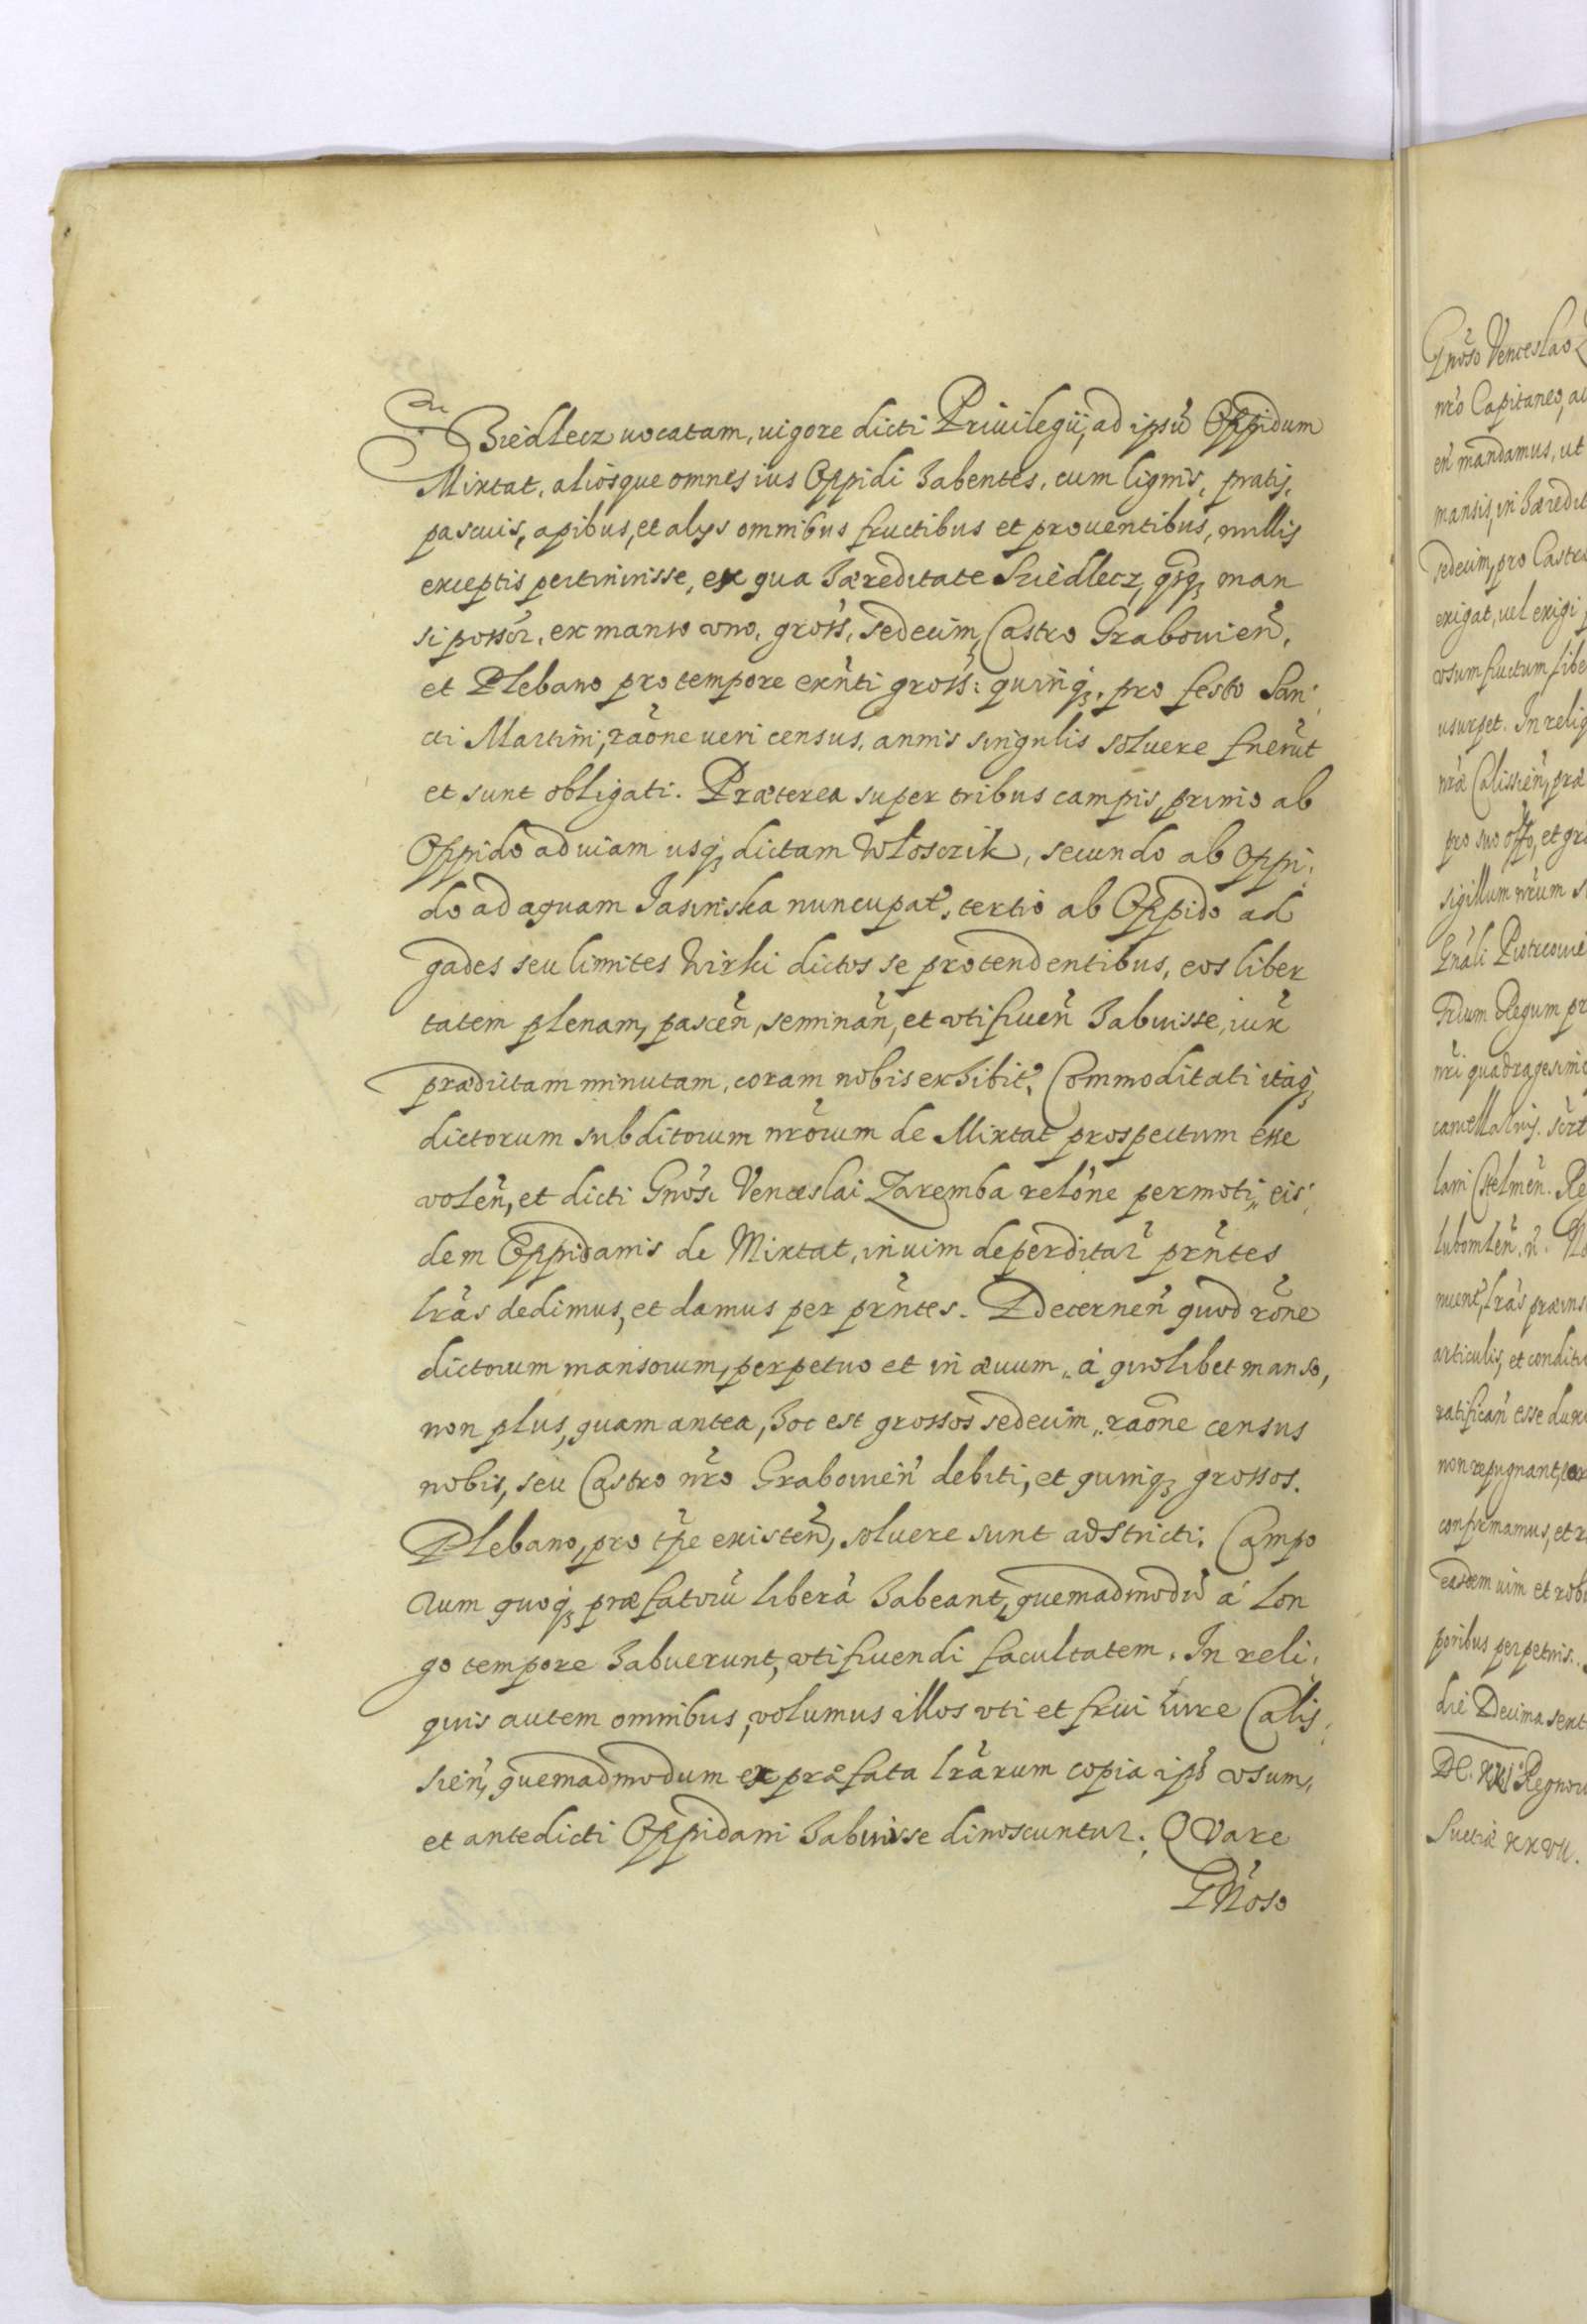 Siedlecz uocatam, uigore dicti Priuilegij, ad ipsũ Oppidum
Mixtat, aliosque omnes ius Oppidi habentes, cum lignis, pratis,
pascuis, apibus, et alijs omnibus fructibus et prouentibus, nullis
exceptis pertinuisse, ex qua hæreditate Siedlecz, man
si ex manso vno, gross, sedecim, Castro Grabouien̄,
et Plebano pro tempore exn̄ti gross: quinq₃, pro festo San:
cti Martini, raōne ueri census, annis singulis soluere fuerũt
et sunt obligati. Præterea super tribus campis, primo ab
Oppido ad uiam usq₃ dictam Włosczik, secundo ab Oppi:
do ad aquam Jasinska nuncupat̃, tertio ab Oppido ad
gades seu limites Wirki dictos se protendentibus, eos liber
tatem plenam, pascen̄, seminan̄, et vtifruen̄ habuisse, iux̃
prædictam minutam, coram nobis exhibit̃. Commoditati itaq₃
dictorum subditorum nr̃orum de Mixtat prospectum esse
volen̄, et dicti Gnosi Venceslai Zaremba relōne permoti, eis:
dem Oppidanis de Mixtat, in uim deperditar̃ prn̄tes
lr̃as dedimus, et damus per prn̄tes. Decernen̄ quod rōne
dictorum mansorum, perpetuo et in æuum, à quolibet manso,
non plus, quam antea, hoc est grossos sedecim, raōne census
nobis, seu Castro nr̃o Grabouien̄ debiti, et quinq₃ grossos.
Plebano, pro tp̃e existen̄, soluere sunt adstricti. Campo
rum quoq₃ præfatorũ liberã habeant, quemadmodũ à lon
go tempore habuerunt, vtifruendi facultatem. In reli:
quis autem omnibus, volumus illos vti et frui iure Calis:
sien̄, quemadmodum ex præfata lr̃arum copia usum,
et antedicti Oppidani habuisse dinoscuntur. QVare
GNoso
Gnōso Venceslao
nr̃o Capitaneo,
en̄ mandamus, ut
mansis, in hæredit
sedecim, pro Castr
exigat, uel exigi
vsumfructum libe
usurpet. In reliq
nr̃æ Calissien̄, præ
pro suo offo, et gr
sigillum nr̃um s
Gnãli Piotrcouie
Trium Regum pr
nr̃i quadragesimo
cancellariis.
lubomlen̄.
lr̃as præins
articulis, et conditi
ratifican̄ esse dux
non repugnant,
confirmamus, et r
easdem uim et rob
poribus perpetuis.
die Decima sext
Regnor
Suetiæ XXVII.